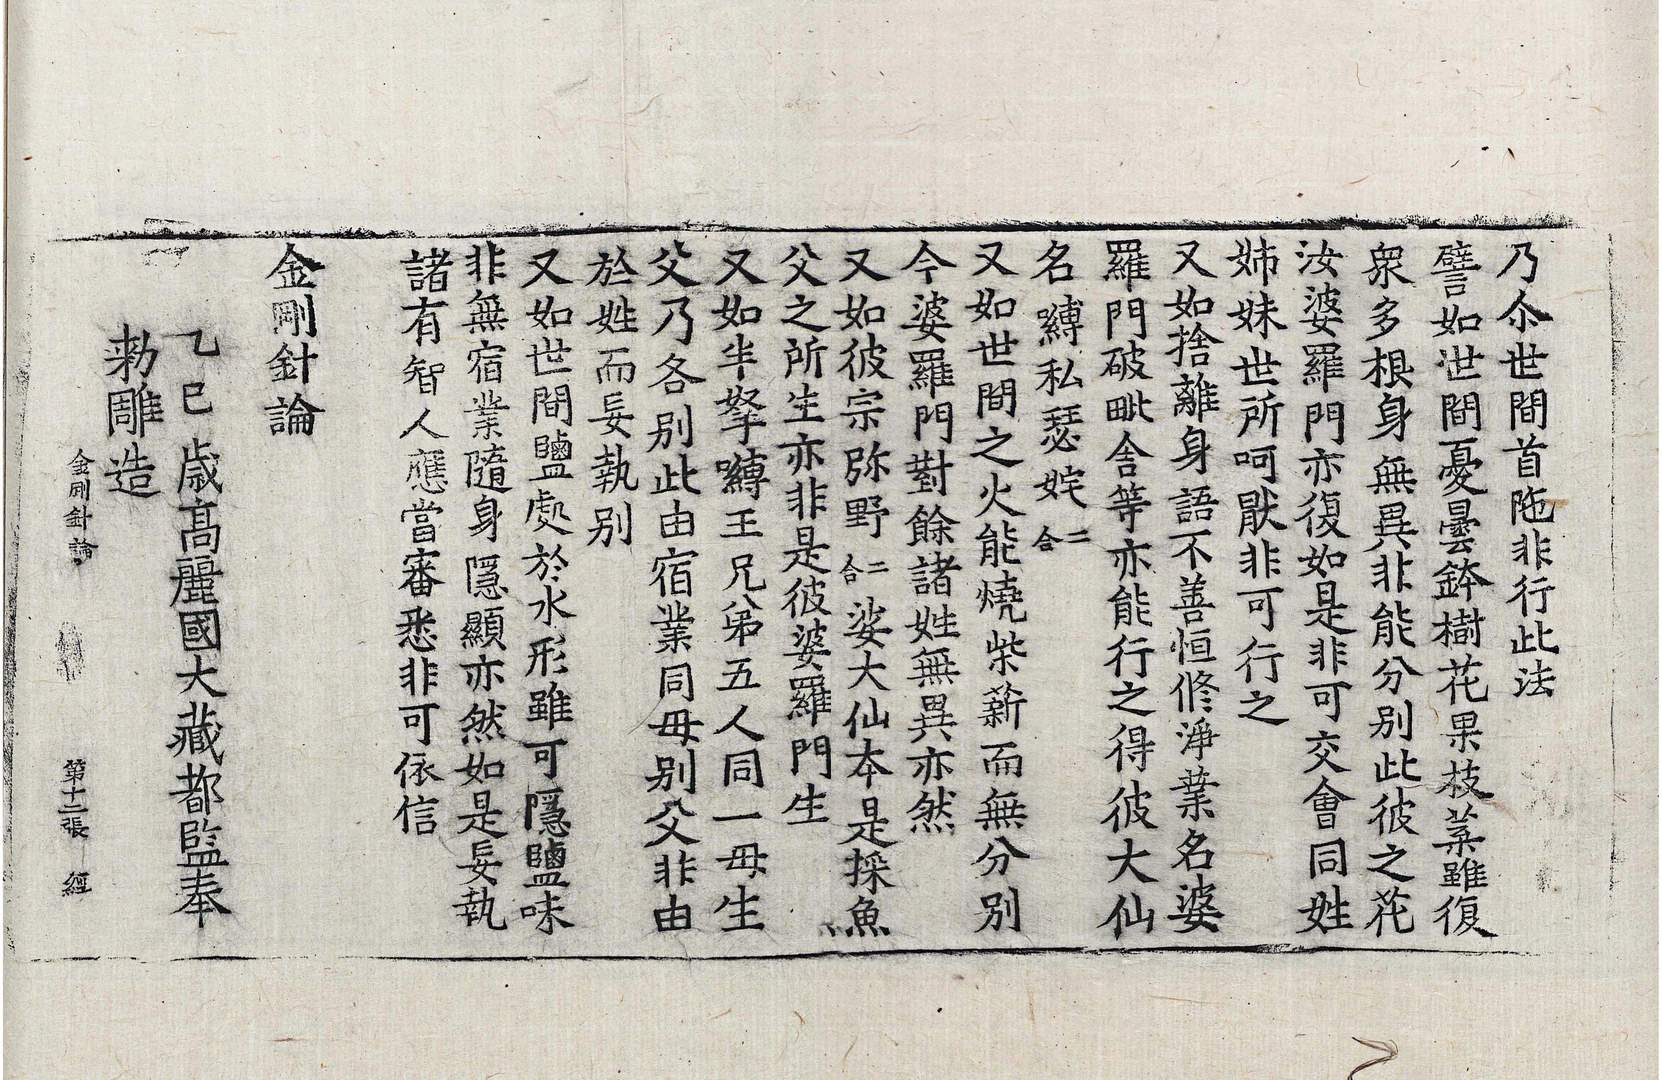 乃尒世間首陁非行此法
譬如世間憂曇鉢樹花果枝菓雖復
衆多根身無異非能分別此彼之花
汝婆羅門亦復如是非可交會同姓
姉妹世所呵猒非可行之
又如捨離身語不善恒修淨業名婆
羅門破毗舍等亦能行之得彼大仙
名嚩私瑟姹二合
又如世間之火能燒柴薪而無分別
今婆羅門對餘諸姓無異亦然
又如彼宗弥野二合娑大仙本是採魚
父之所生亦非是彼婆羅門生
又如半拏嚩王兄弟五人同一母生
父乃各別此由宿業同母別父非由
於姓而妄執別
又如世間鹽處於水形雖可隱鹽味
非無宿業隨身隱顯亦然如是妄執
諸有智人應當審悉非可依信
金剛針論
乙巳歳高麗國大藏都監奉
勑雕造
金剛針論 第十二張 經